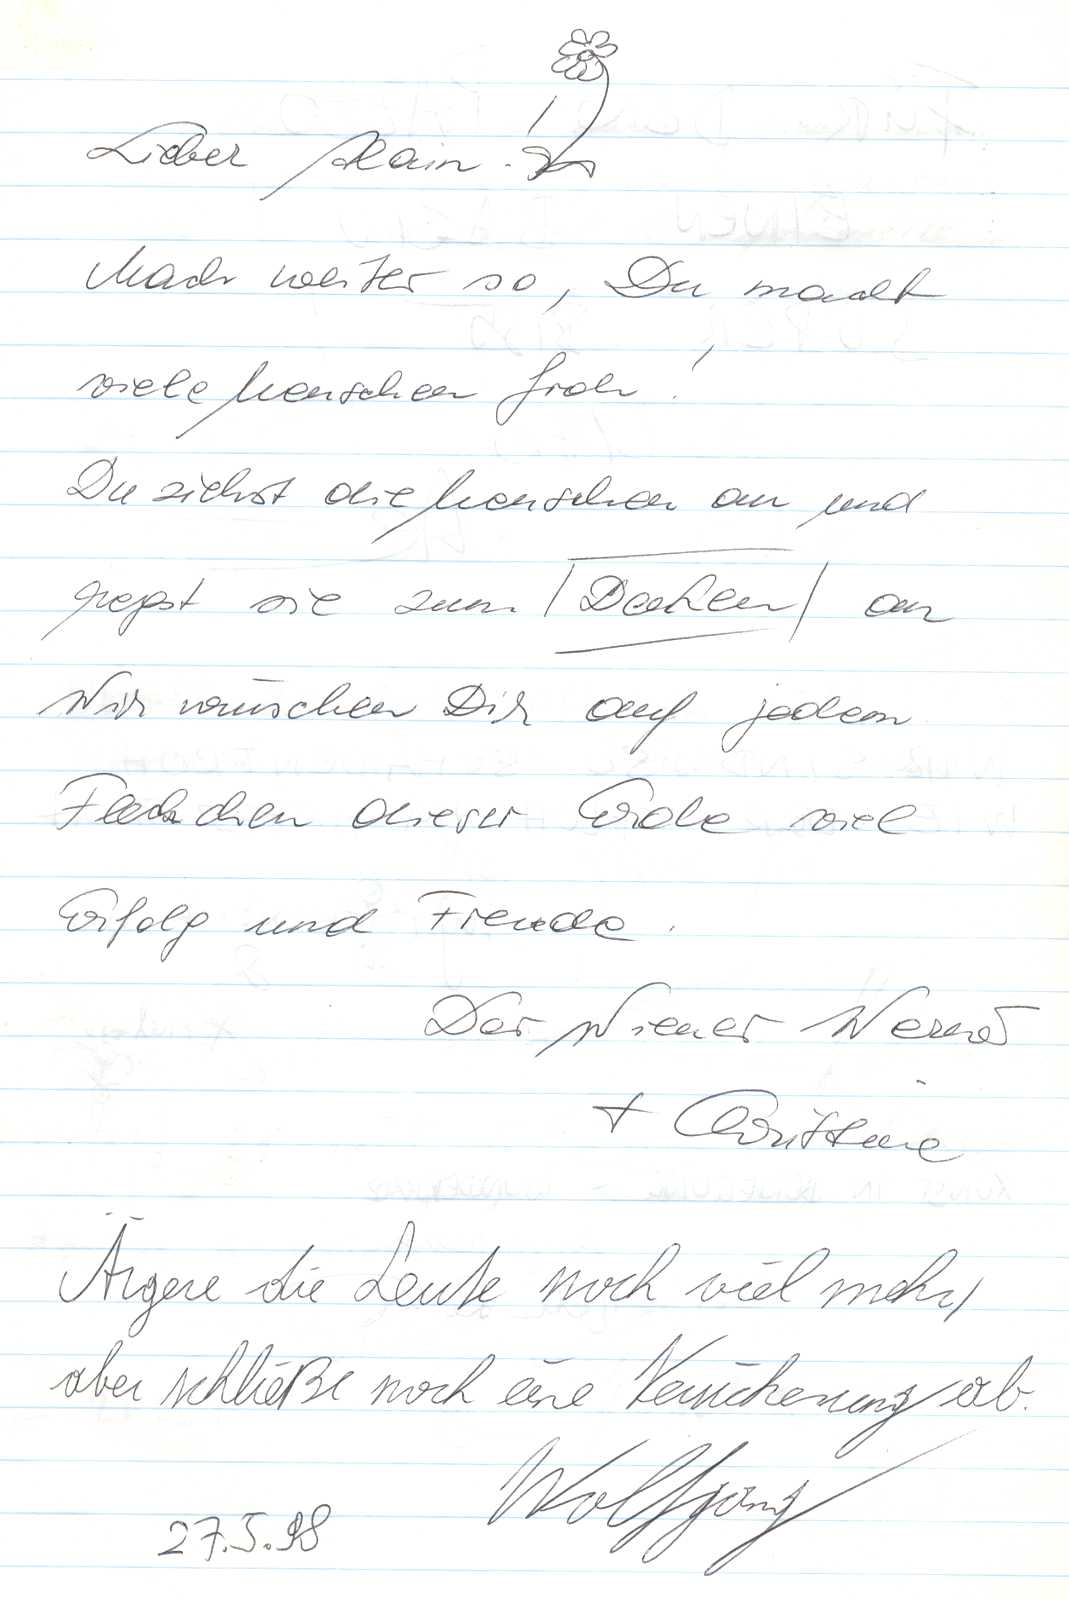 Lieber Alain!
Mach weiter so, Du machst
viele Menschen froh!
Du ziehst die Menschen an und
regst sie zum Denken an
Wir wünschen Dir auf jedem
Fleckchen dieser Erde viel
Erfolg und Freude.
Der Wiener Werner
+ Christine
Ärgere die Leute noch viel mehr,
aber schließe noch eine Versicherung ab.
Wolfgang
27.5.98